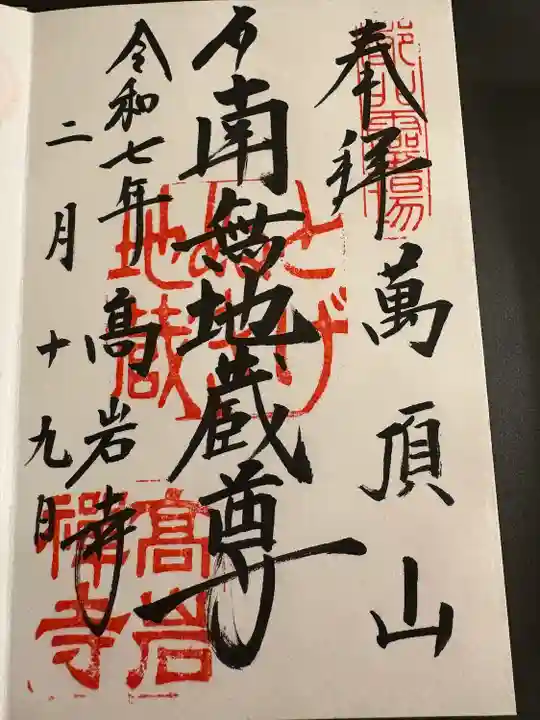 奉拜 萬頂山
南無地蔵尊
令和七年 高岩寺
二月十九日
とげぬき地蔵
高岩禅寺